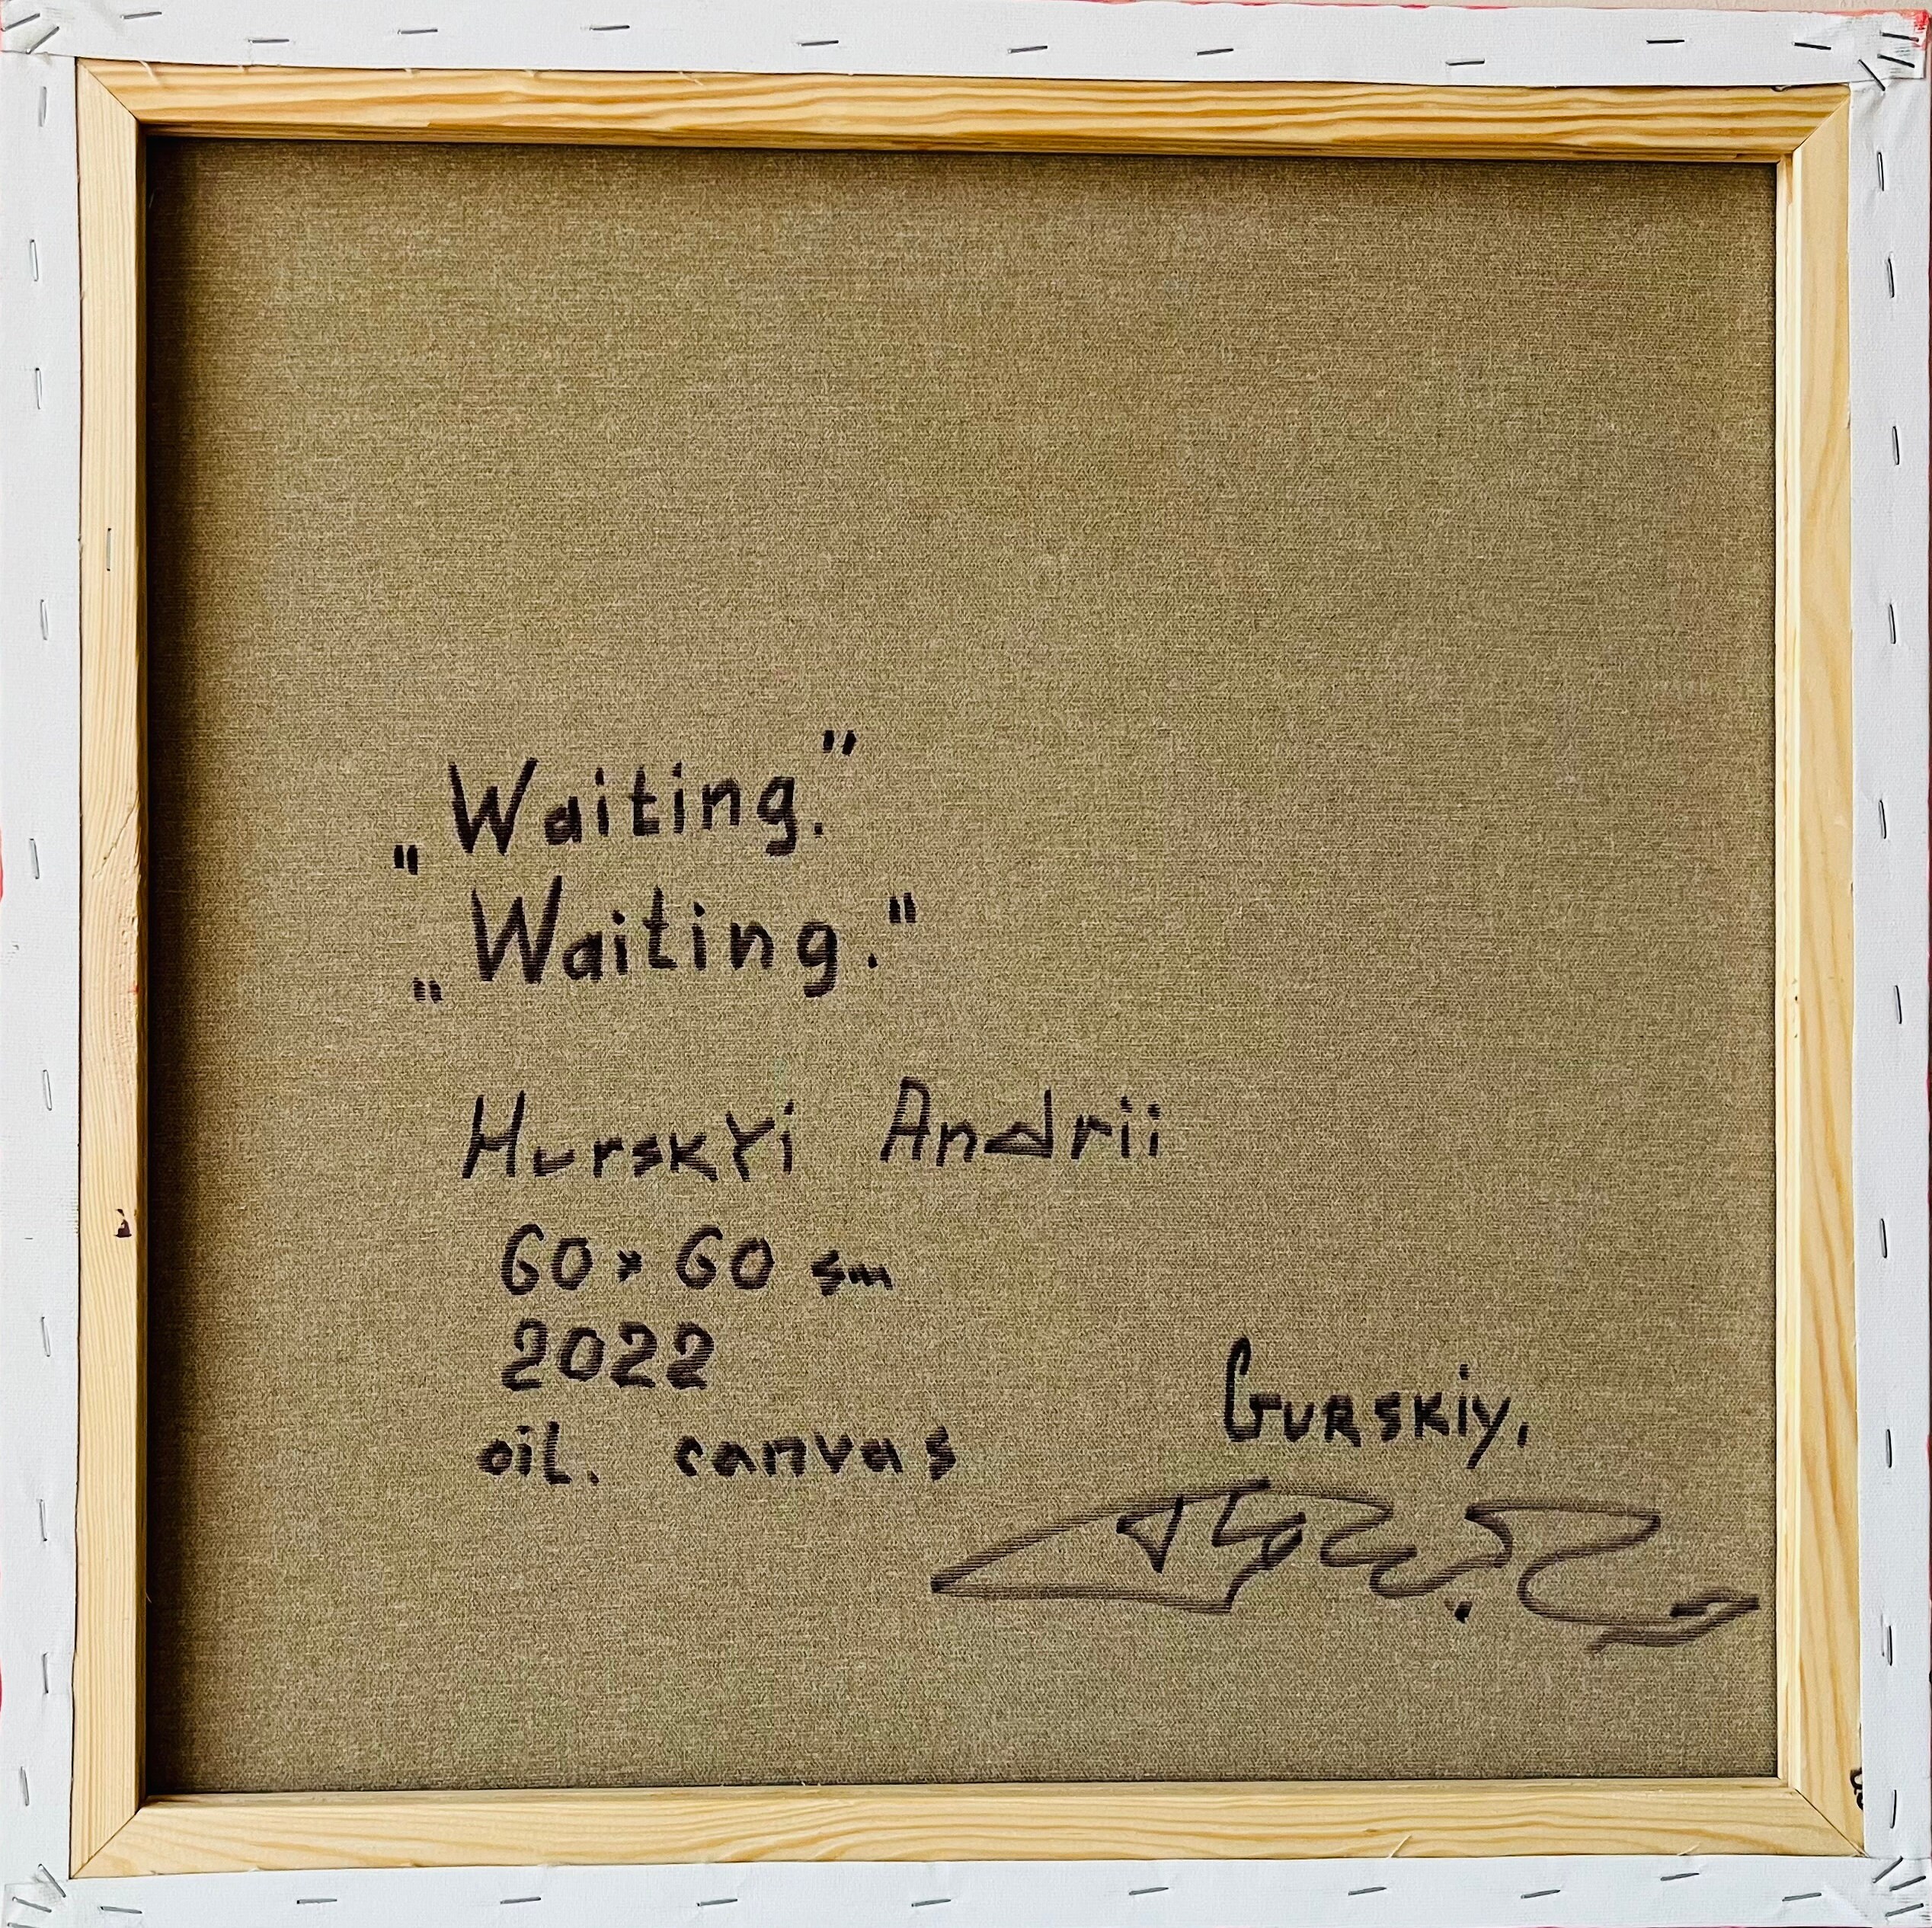 „Waiting."
„Waiting."
Hurskyi Andrii
60 × 60 sm
2022
oil. canvas
GURSKiy.